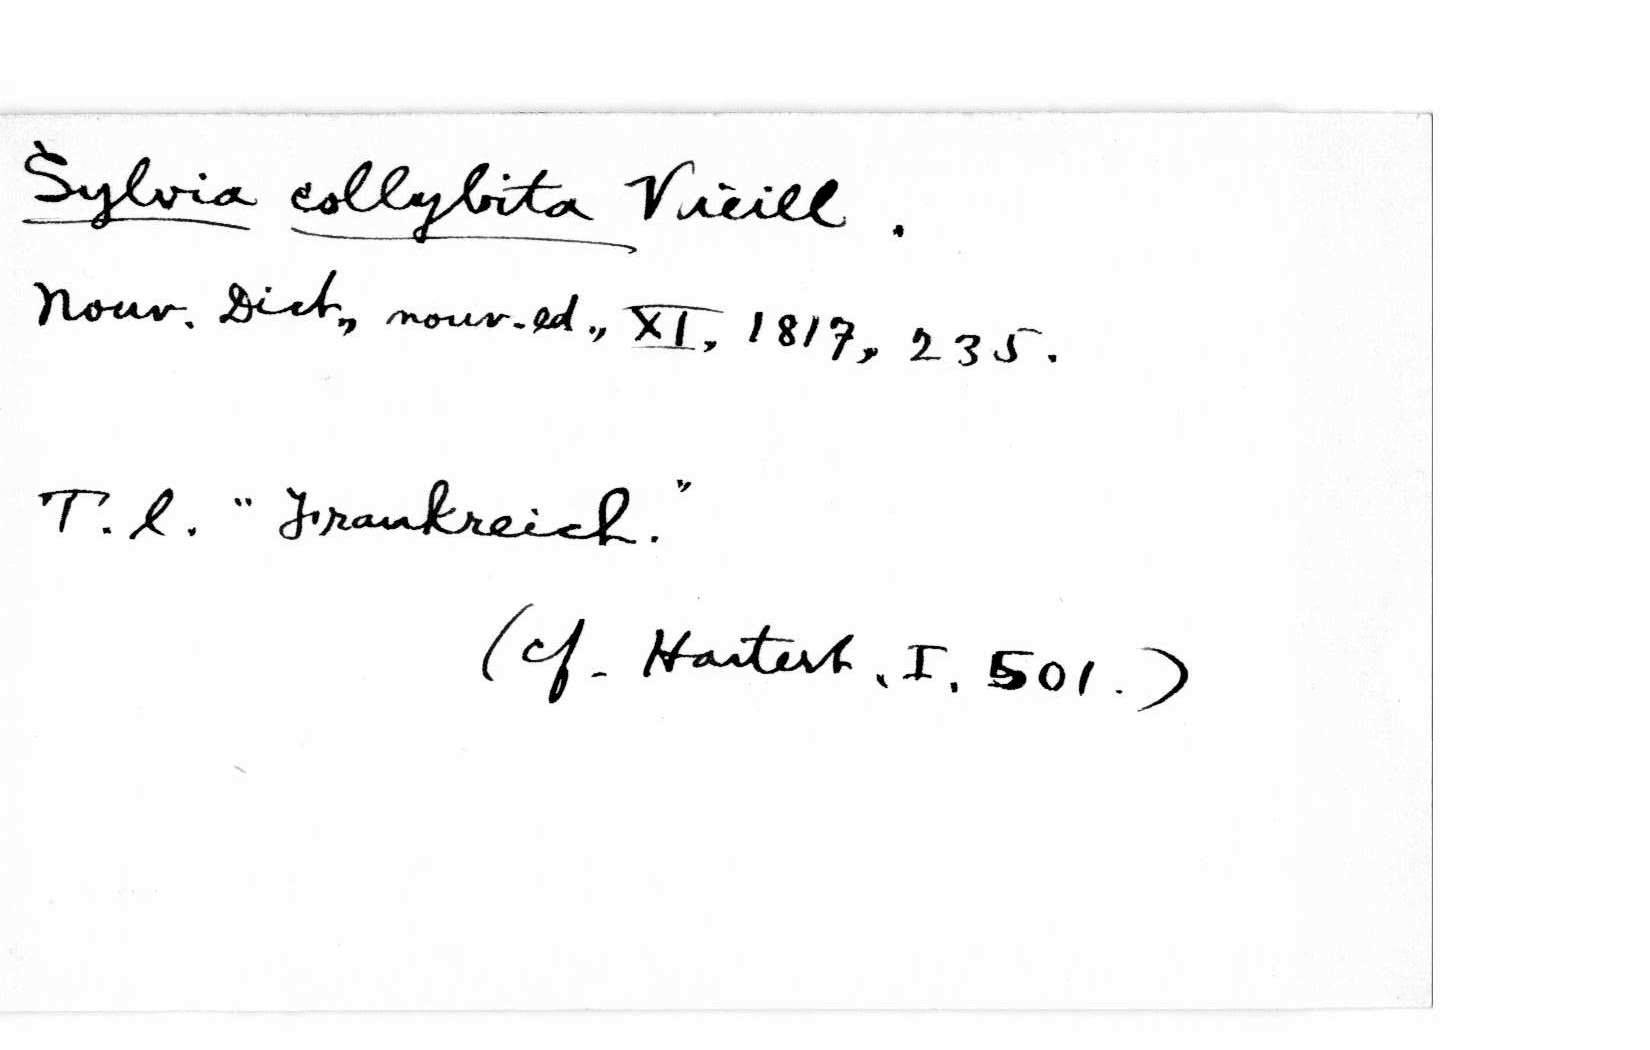 Sylvia collybita Vieill.
Nouv. Dict., nouv. ed., XI, 1817, 235.
T. l. "Frankreich."
(cf. Hartert, I, 501.)